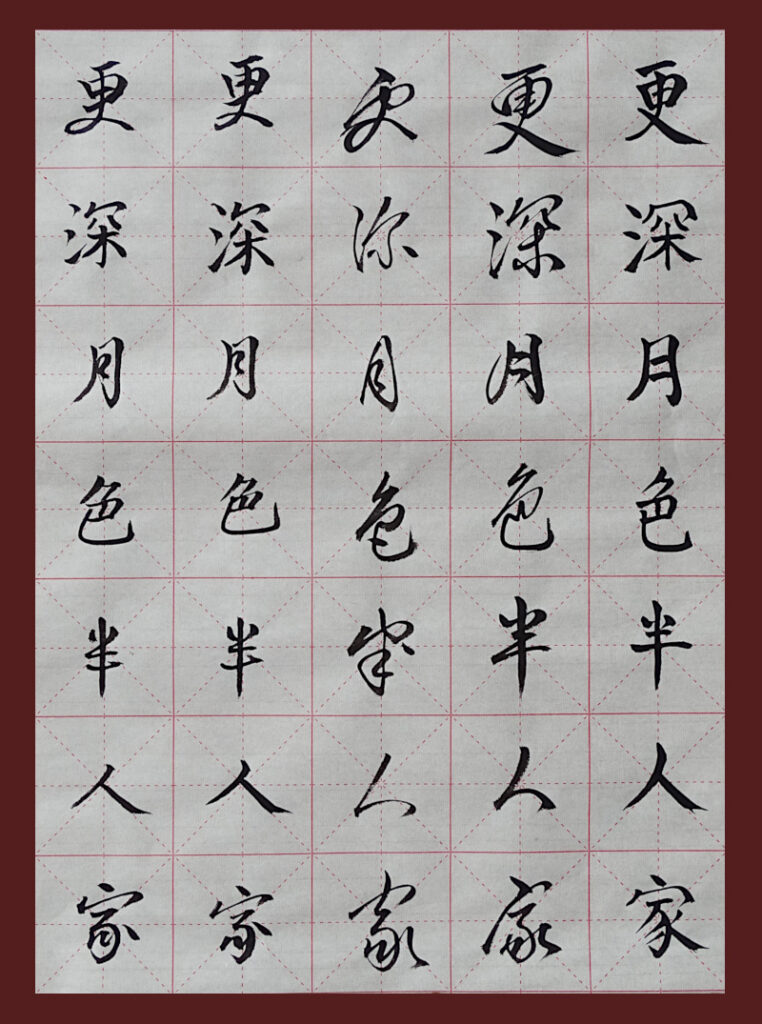 更更更更更
深深深深深
月月月月月
色色色色色
半半半半半
人人人人人
家家家家家